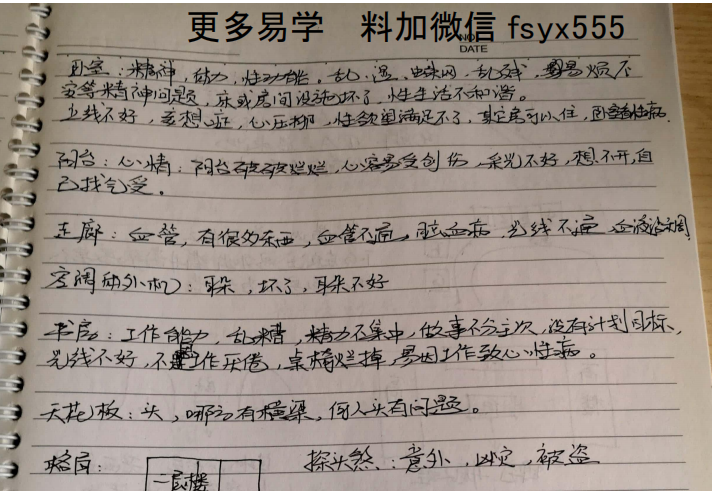 更多易学 料加微信 fsyx555
NO.
DATE
卧室：精神，能力，性功能。乱、湿、蜘蛛网、乱残，易烦不
安等精神问题，床或房间设施坏了，性生活不和谐。
光线不好，妄想症，心压抑，性欲望满足不了，其它房可以住，卧室看性病.
阳台：心情：阳台破破烂烂，心容易受创伤，采光不好，想不开，自
己找气受。
走廊：血管，有很多东西，血管不通，脑血病，光线不通，血液
空调和外机：耳朵，坏了，耳朵不好
书房：工作能力，乱糟，精力不集中，做事不分主次，没有计划目标，
光线不好，不工作厌倦，桌椅烂掉，易因工作致心性病。
天花板：头，哪方有横梁，何人头有问题。
格局： 一层楼 探头煞：意外，凶灾，被盗